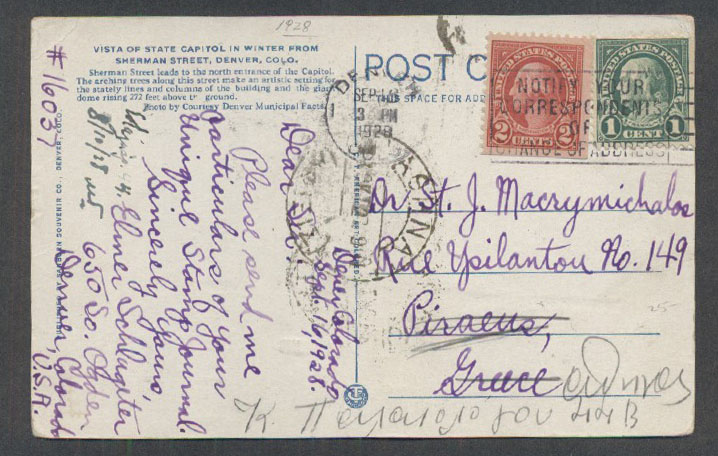 1928
VISTA OF STATE CAPITOL IN WINTER FROM
SHERMAN STREET, DENVER, COLO.
Sherman Street leads to the north entrance of the Capitol.
The arching trees along this street make an artistic setting for
the stately lines and columns of the building and the giant
dome rising 272 feet above the ground.
Photo by Courtesy Denver Municipal Facts
POST
SPACE FOR
UNITED STATES POSTAGE
2 CENTS 2
UNITED STATES POSTAGE
1 CENT 1
DENVER
SEP 16
3 PM
1928
NOTIFY YOUR
CORRESPONDENTS
OF
CHANGE OF ADDRESS
Denver, Colorado,
Sept. 16, 1928.
Dear Sir:
Please send me
particulars of your
Unique Stamp Journal.
Sincerely Yours,
Elmer Schlagter
650 So. Ogden
Denver, Colorado
U.S.A.
# 16037
Dr. St. J. Macrymichalos
Rue Ypsilantou No. 149
Piraeus,
Greece
Αθηνας
Κ. Παλαιολογου 44 Β
25-